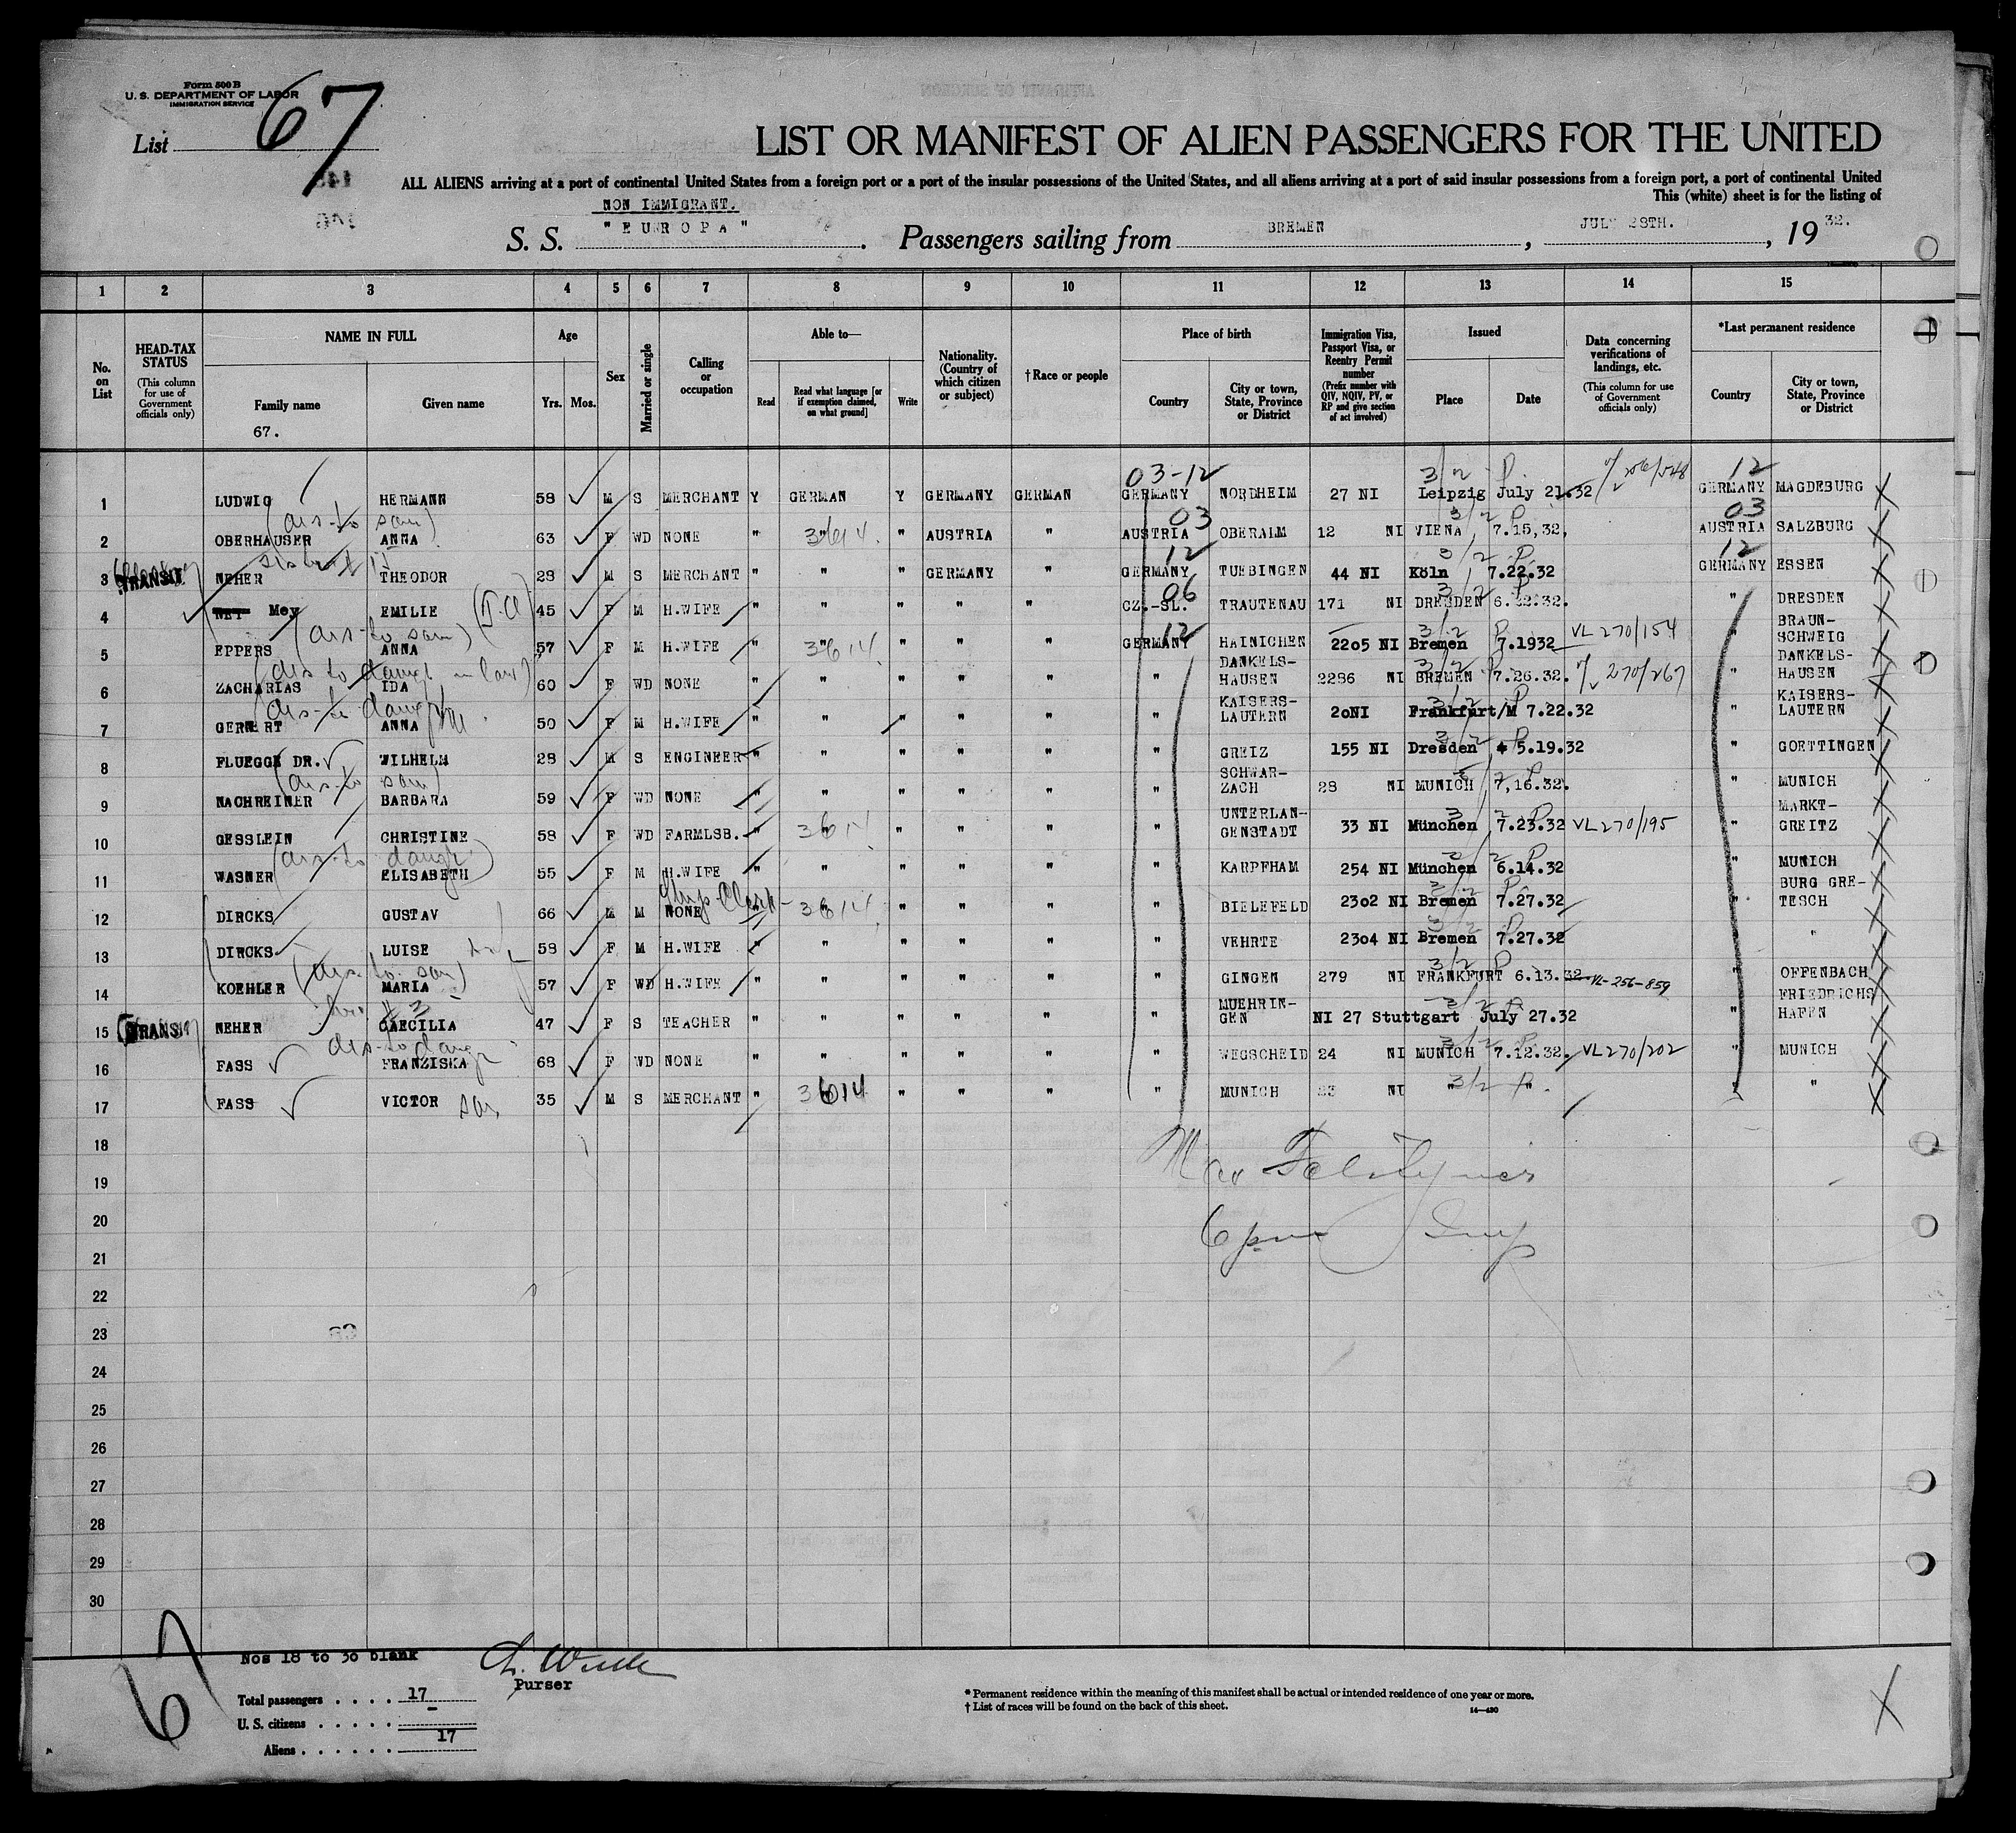 Form 500 B
U. S. DEPARTMENT OF LABOR
IMMIGRATION SERVICE
List 67
LIST OR MANIFEST OF ALIEN PASSENGERS FOR THE UNITED
ALL ALIENS arriving at a port of continental United States from a foreign port or a port of the insular possessions of the United States, and all aliens arriving at a port of said insular possessions from a foreign port, a port of continental United
This (white) sheet is for the listing of
NON IMMIGRANT.
S. S. "EUROPA". Passengers sailing from BREMEN, JULY 28TH., 19 32.
1 2 3 4 5 6 7 8 9 10 11 12 13 14 15
No. on List
HEAD-TAX STATUS (This column for use of Government officials only)
NAME IN FULL
Family name
Given name
67.
Age
Yrs. Mos.
Sex
Married or single
Calling or occupation
Able to—
Read
Read what language [or if exemption claimed, on what ground]
Write
Nationality. (Country of which citizen or subject)
†Race or people
Place of birth
Country
City or town, State, Province or District
Immigration Visa, Passport Visa, or Reentry Permit number (Prefix number with QIV, NQIV, PV, or RP and give section of act involved)
Issued
Place
Date
Data concerning verifications of landings, etc. (This column for use of Government officials only)
*Last permanent residence
Country
City or town, State, Province or District
03-12 3/2 P. 12
1 LUDWIG HERMANN 58 M S MERCHANT Y GERMAN Y GERMANY GERMAN GERMANY NORDHEIM 27 NI Leipzig July 21.32 GERMANY MAGDEBURG
(dis-to son) 03 3/2 P 03
2 OBERHAUSER ANNA 63 F WD NONE " " 3614. " AUSTRIA " AUSTRIA OBERALM 12 NI VIENA 7.15,32, AUSTRIA SALZBURG
12 3/2 P. 12
3 TRANSIT NEHER THEODOR 28 M S MERCHANT " " " GERMANY GERMANY TUEBINGEN 44 NI Köln 7.22.32 GERMANY ESSEN
06 3/2 P
4 Mey EMILIE 45 F M H.WIFE " " " " " CZ.-SL. TRAUTENAU 171 NI DRESDEN 6.22.32. " DRESDEN
(dis-to son) 12 3/2 P
5 EPPERS ANNA 57 F M H.WIFE " " 3614 " " " GERMANY HAINICHEN 2205 NI Bremen 7.1932 VL 270/154 " BRAUN-
SCHWEIG
(dis to daught in law) 3/2 P
6 ZACHARIAS IDA 60 F WD NONE " " " " " " DANKELS-
HAUSEN 2286 NI BREMEN 7.26.32. 270/267 " DANKELS-
HAUSEN
dis-to daught 3/2 P
7 GERNERT ANNA 50 F M H.WIFE " " " " " " KAISERS-
LAUTERN 20NI Frankfurt/M 7.22.32 " KAISERS-
LAUTERN
8 FLUEGGE DR. WILHELM 28 M S ENGINEER " " " " " " GREIZ 155 NI Dresden 5.19.32 " GOETTINGEN
(dis-to son)
9 NACHREINER BARBARA 59 F WD NONE " " " " " " SCHWAR-
ZACH 28 NI MUNICH 7,16.32. " MUNICH
10 GESSLEIN CHRISTINE 58 F WD FARMLSB. " " 3614 " " " " UNTERLAN-
GENSTADT 33 NI München 7.23.32 VL 270/195 " MARKT-
GREITZ
(dis-to daugr)
11 WASNER ELISABETH 55 F M H.WIFE " " " " " " KARPFHAM 254 NI München 6.14.32 " MUNICH
12 DIRCKS GUSTAV 66 M M NONE " " 3614 " " " " BIELEFELD 2302 NI Bremen 7.27.32 " BURG GRE-
TESCH
13 DIRCKS LUISE 58 F M H.WIFE " " " " " " VEHRTE 2304 NI Bremen 7.27.32 "
(dis-to son) 3/2 P
14 KOEHLER MARIA 57 F WD H.WIFE " " " " " " GINGEN 279 NI FRANKFURT 6.13.32 VL-256-859 " OFFENBACH
15 TRANSIT NEHER CAECILIA 47 F S TEACHER " " " " " " MUEHRIN-
GEN NI 27 Stuttgart July 27.32 " FRIEDRICHS
HAFEN
dis-to daugr
16 FASS FRANZISKA 68 F WD NONE " " " " " " WEGSCHEID 24 NI MUNICH 7.12.32. VL270/202 " MUNICH
17 FASS VICTOR son 35 M S MERCHANT " 3614 " " " " MUNICH 23 NI " 3/2 P. " "
18
19
20
6 pm
21
22
23
24
25
26
27
28
29
30
67
Nos 18 to 30 blank
Purser
Total passengers . . . . 17
U. S. citizens . . . . .
Aliens . . . . . . 17
* Permanent residence within the meaning of this manifest shall be actual or intended residence of one year or more.
† List of races will be found on the back of this sheet.
14—430